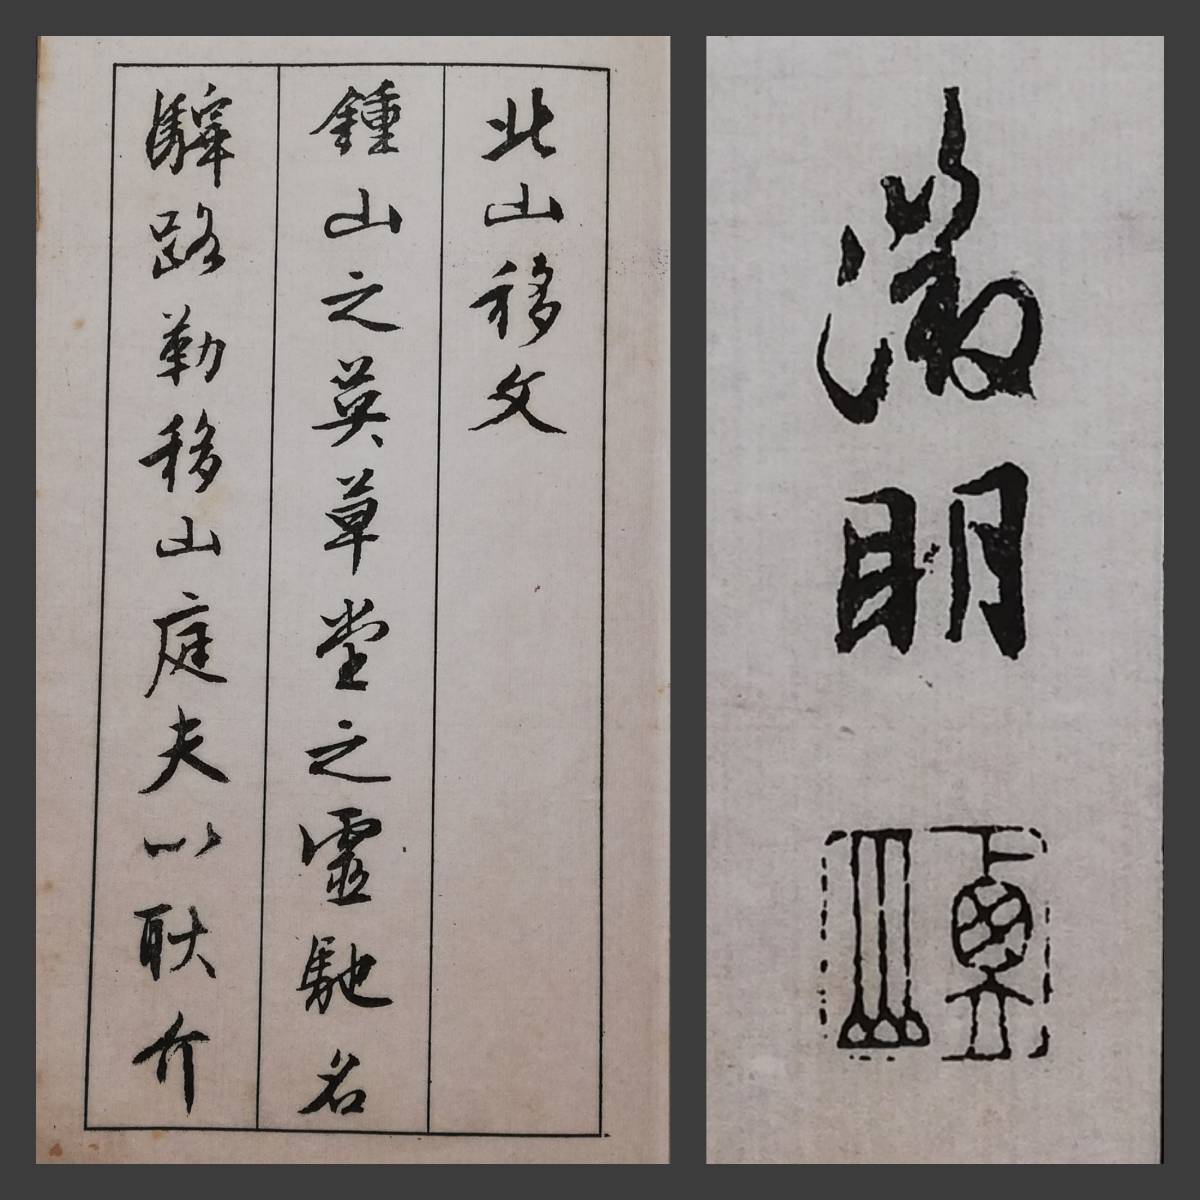 北山移文
鍾山之英草堂之靈馳名
驛路勒移山庭夫以耿介
徵明